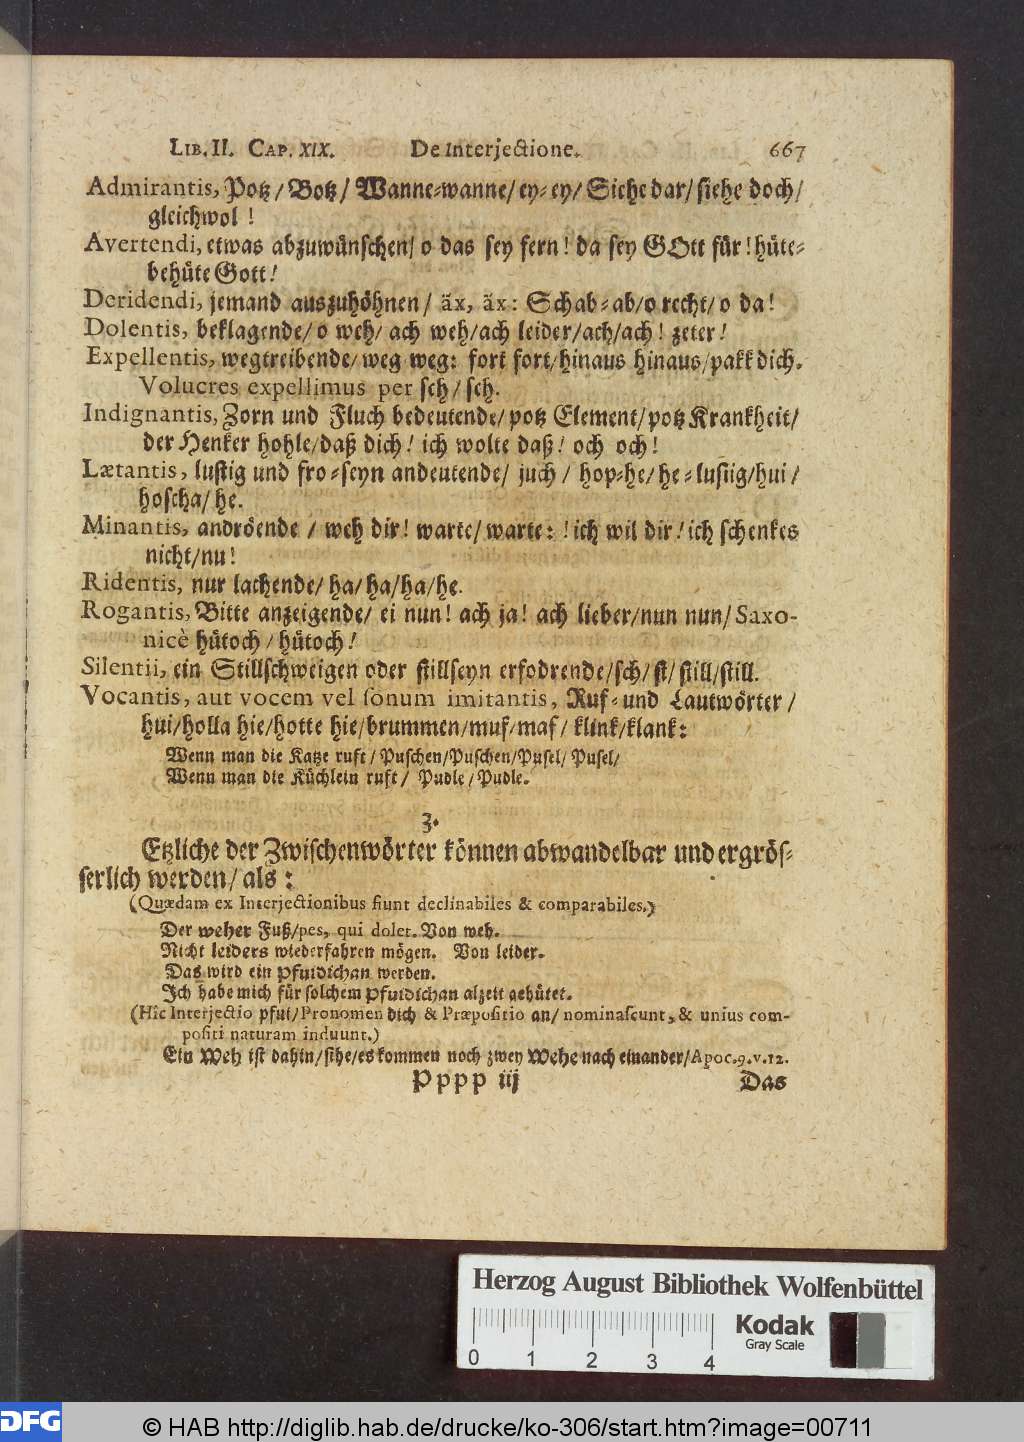 LIB. II. CAP. XIX. De Interjectione. 667
Admirantis, Potz / Botz / Wanne-wanne / ey-ey / Siehe dar / siehe doch /
gleichwol !
Avertendi, etwas abzuwünschen / o das sey fern ! da sey GOtt für ! hüte-
behüte Gott !
Deridendi, jemand auszuhöhnen / äx, äx : Schab-ab / o recht / o da !
Dolentis, beklagende / o weh / ach weh / ach leider / ach / ach ! zeter !
Expellentis, wegtreibende / weg weg : fort fort / hinaus hinaus / pakk dich.
Volucres expellimus per sch / sch.
Indignantis, Zorn und Fluch bedeutende / potz Element / potz Krankheit /
der Henker hohle / daß dich ! ich wolte daß ! och och !
Lætantis, lustig und fro-seyn andeutende / juch / hop-he / he-lustig / hui /
hoscha / he.
Minantis, andröende / weh dir ! warte / warte : ! ich wil dir ! ich schenkes
nicht / nu !
Ridentis, nur lachende / ha / ha / ha / he.
Rogantis, Bitte anzeigende / ei nun ! ach ja ! ach lieber / nun nun / Saxo-
nicè hütoch / hütoch !
Silentii, ein Stillschweigen oder stillseyn erfodrende / sch / st / still / still.
Vocantis, aut vocem vel sonum imitantis, Ruf- und Lautwörter /
hui / holla hie / hotte hie / brummen / muf-maf / klink / klank :
Wenn man die Katze ruft / Puschen / Puschen / Pusel / Pusel /
Wenn man die Küchlein ruft / Pudle / Pudle.
3.
Etzliche der Zwischenwörter können abwandelbar und ergrös-
serlich werden / als :
(Quædam ex Interjectionibus fiunt declinabiles & comparabiles.)
Der weher Fuß / pes, qui dolet. Von weh.
Nicht leiders wiederfahren mögen. Von leider.
Das wird ein pfuidichan werden.
Ich habe mich für solchem pfuidichan alzeit gehütet.
(Hic Interjectio pfui / Pronomen dich & Præpositio an / nominascunt, & unius com-
positi naturam induunt.)
Ein Weh ist dahin / sihe / es kommen noch zwey Wehe nach einander / Apoc. 9. v. 12.
Pppp iij Das
Herzog August Bibliothek Wolfenbüttel
0 1 2 3 4
Kodak
Gray Scale
DFG © HAB http://diglib.hab.de/drucke/ko-306/start.htm?image=00711